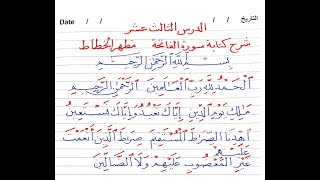 التاريخ / / Date / /
الدرس الثالث عشر
شرح كتابة سورة الفاتحة مطهر الخطاط
بِسْمِ اللَّهِ الرَّحْمَٰنِ الرَّحِيمِ
الْحَمْدُ لِلَّهِ رَبِّ الْعَالَمِينَ الرَّحْمَٰنِ الرَّحِيمِ
مَالِكِ يَوْمِ الدِّينِ إِيَّاكَ نَعْبُدُ وَإِيَّاكَ نَسْتَعِينُ
اهْدِنَا الصِّرَاطَ الْمُسْتَقِيمَ صِرَاطَ الَّذِينَ أَنْعَمْتَ عَلَيْهِمْ
غَيْرِ الْمَغْضُوبِ عَلَيْهِمْ وَلَا الضَّالِّينَ